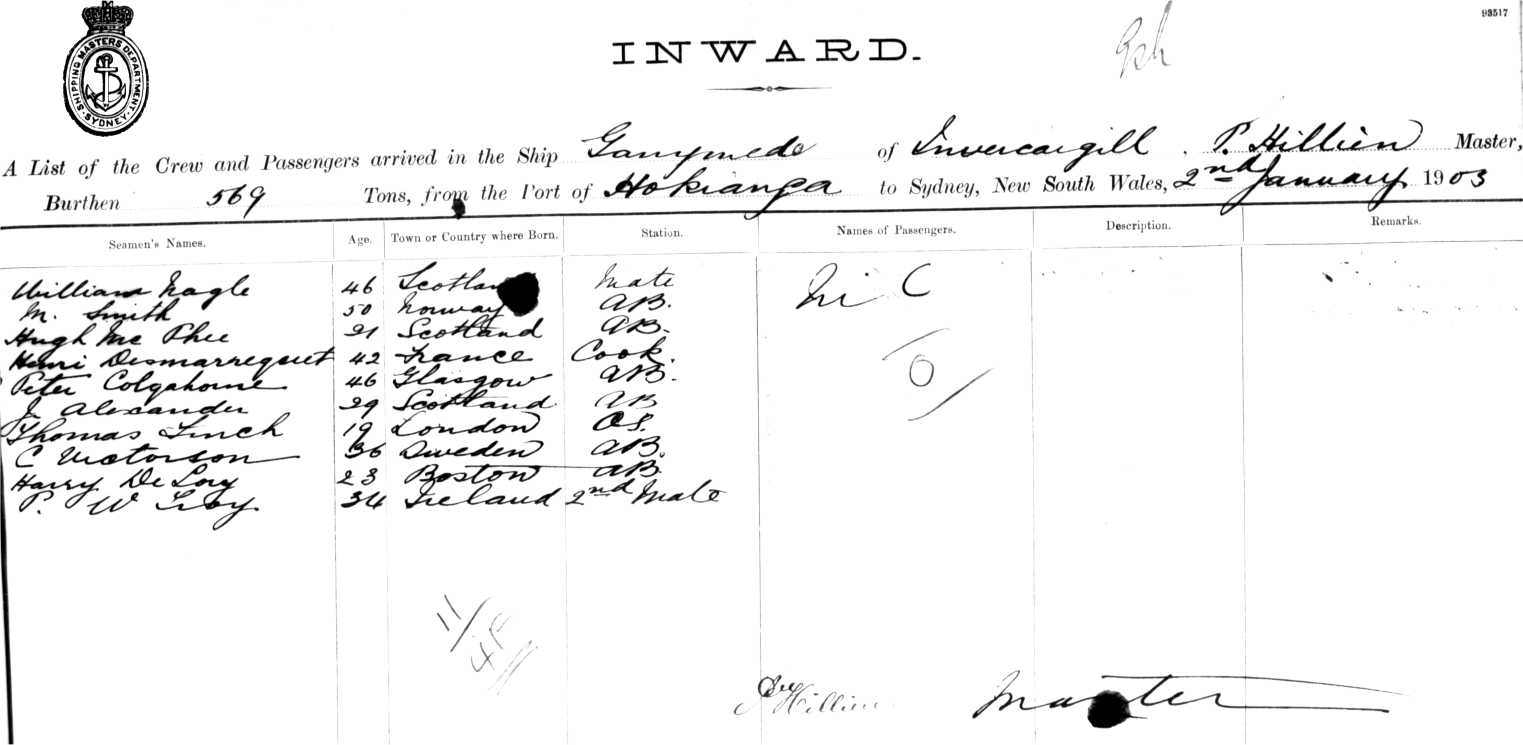 93517
SHIPPING MASTERS DEPARTMENT
SYDNEY
INWARD.
A List of the Crew and Passengers arrived in the Ship Ganymede of Invercargill. P. Hillien Master,
Burthen 569 Tons, from the Port of Hokianga to Sydney, New South Wales, 2nd January 1903
Seamen's Names. Age. Town or Country where Born. Station. Names of Passengers. Description. Remarks.
William Nagle 46 Scotland Mate
M. Smith 50 Norway AB.
Hugh Mc Phee 21 Scotland AB.
Henri Desmarrequet 42 France Cook.
Peter Colqahoune 46 Glasgow AB.
J Alexander 29 Scotland AB
Thomas Finch 19 London OS.
C Victorson 36 Sweden AB.
Harry De Lory 23 Boston AB.
P. W Troy 34 Ireland 2nd Mate
Nil
11
Hillien Master